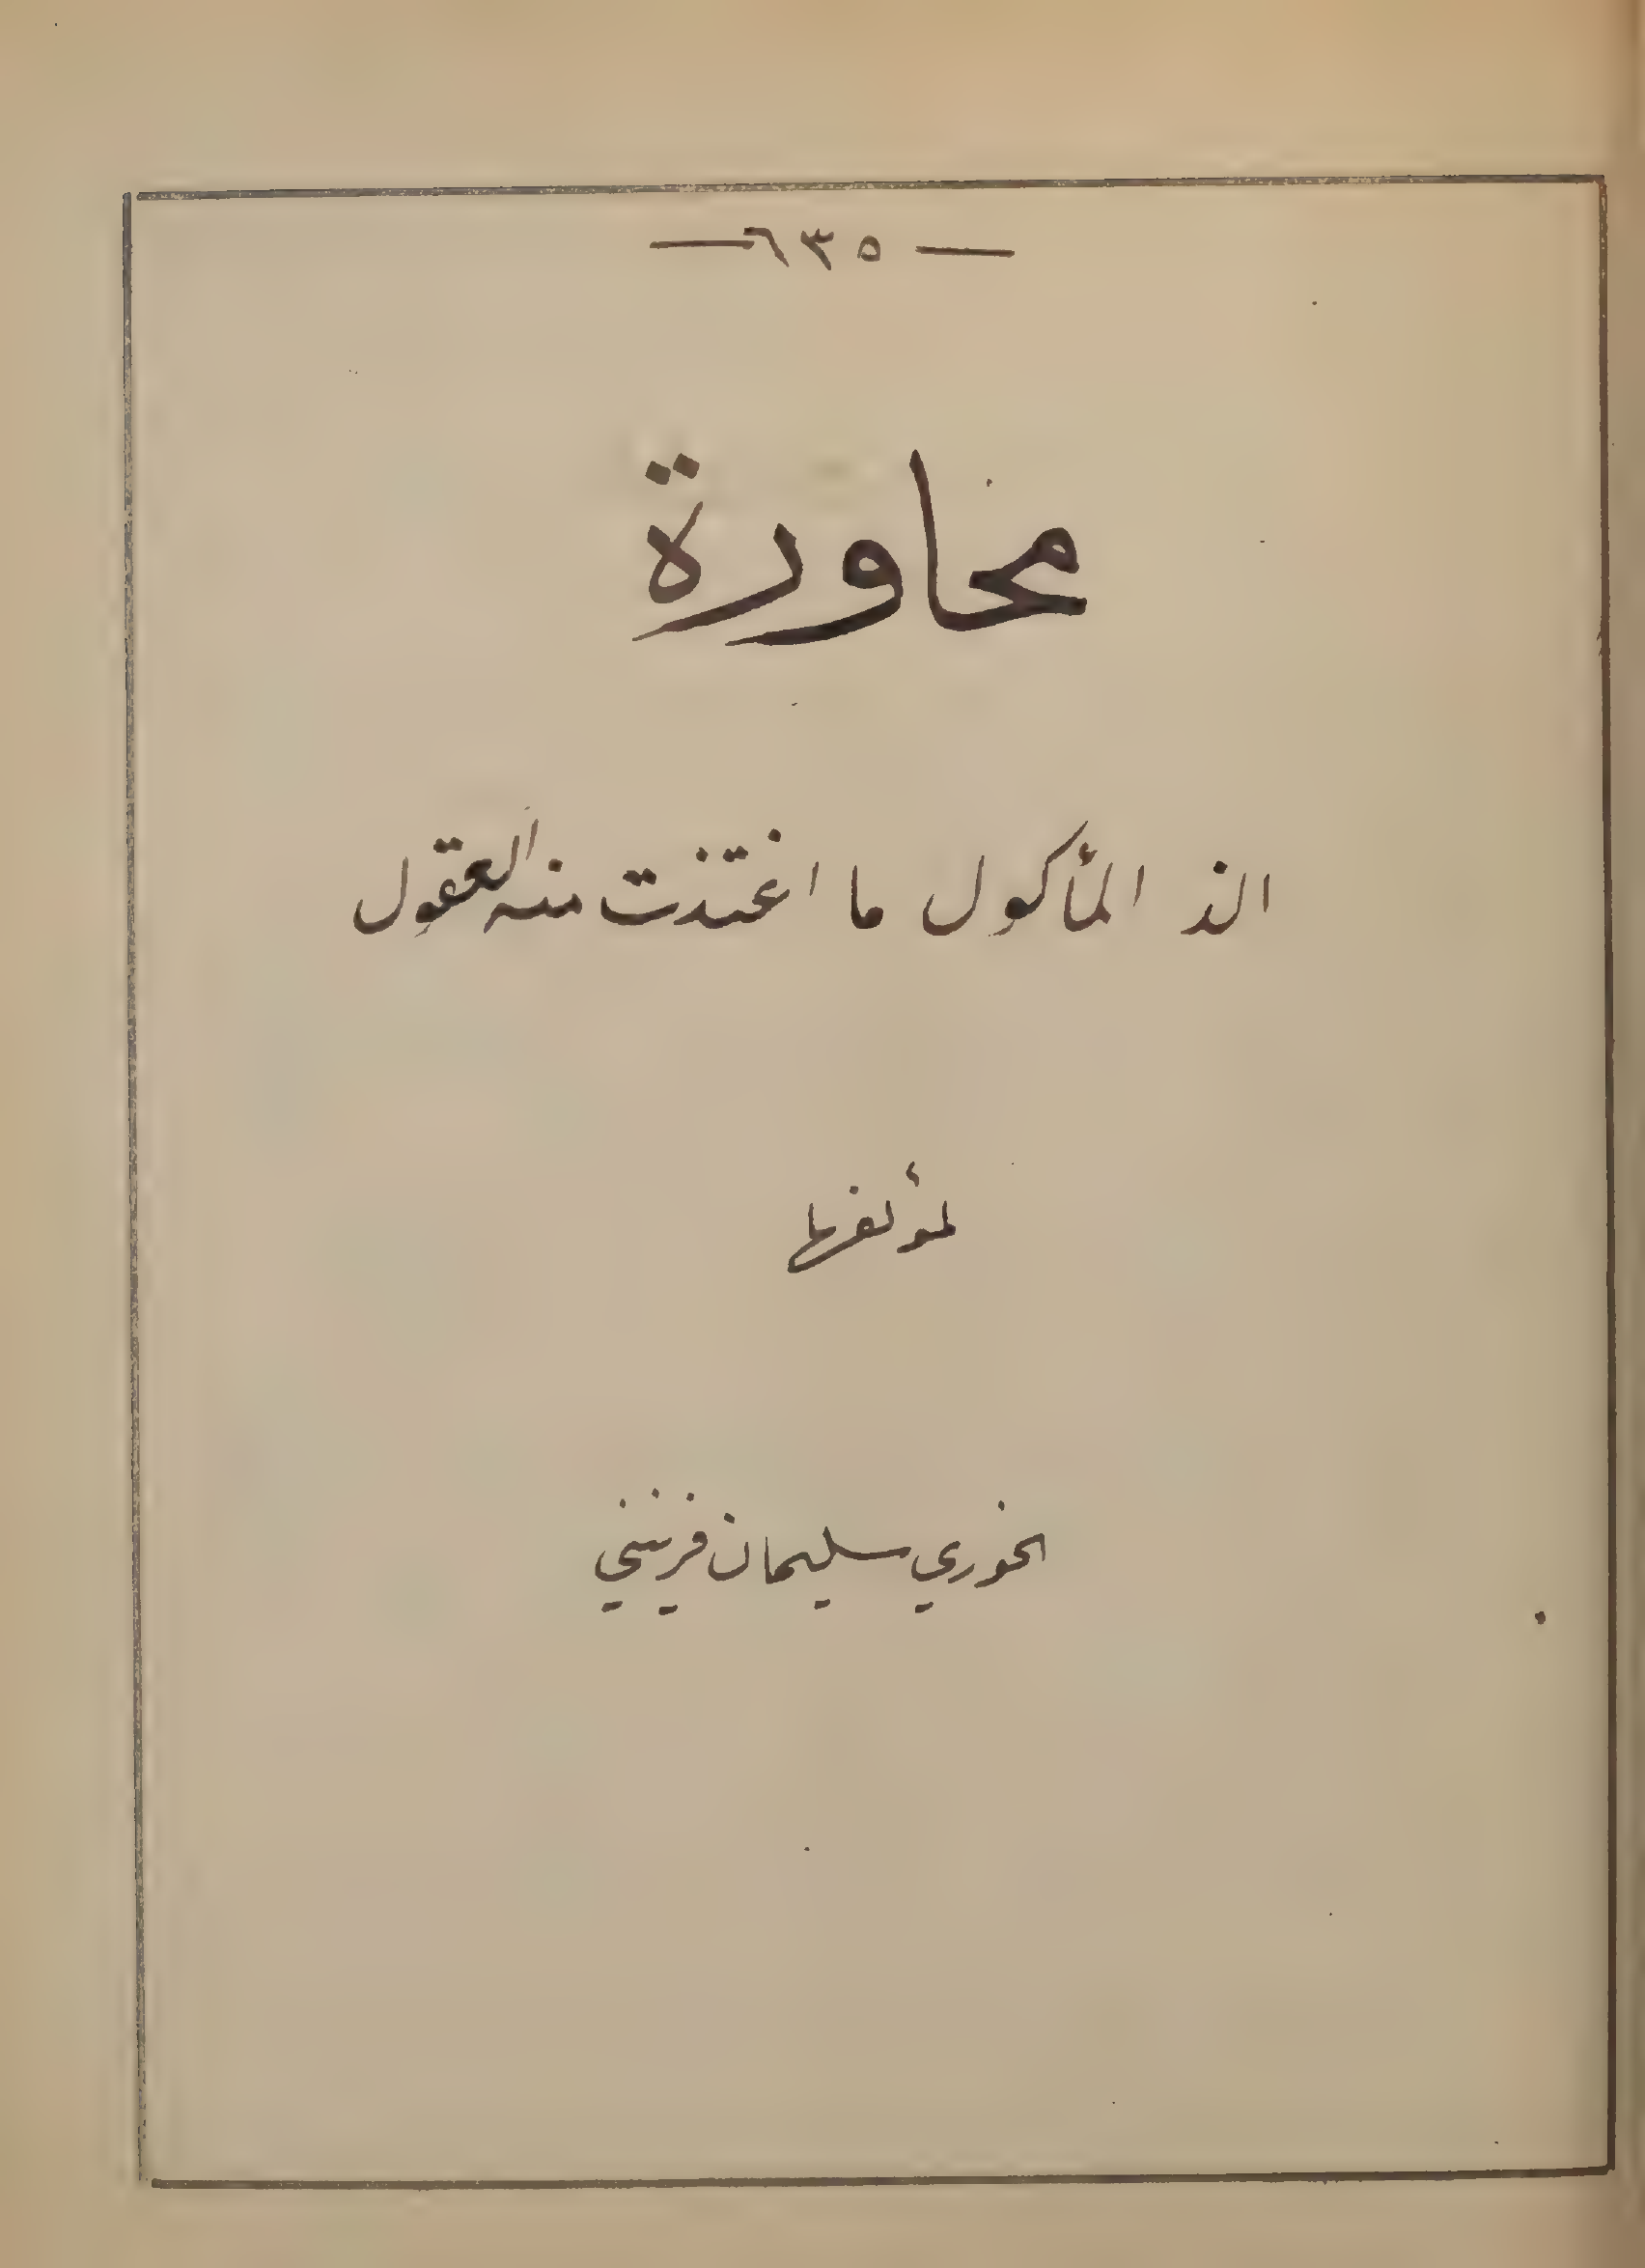 — ٦٣٥ —
محاورة
الذ المأكول ما اغتذت منه العقول
لمؤلفها
الخوري سليمان فرنيني